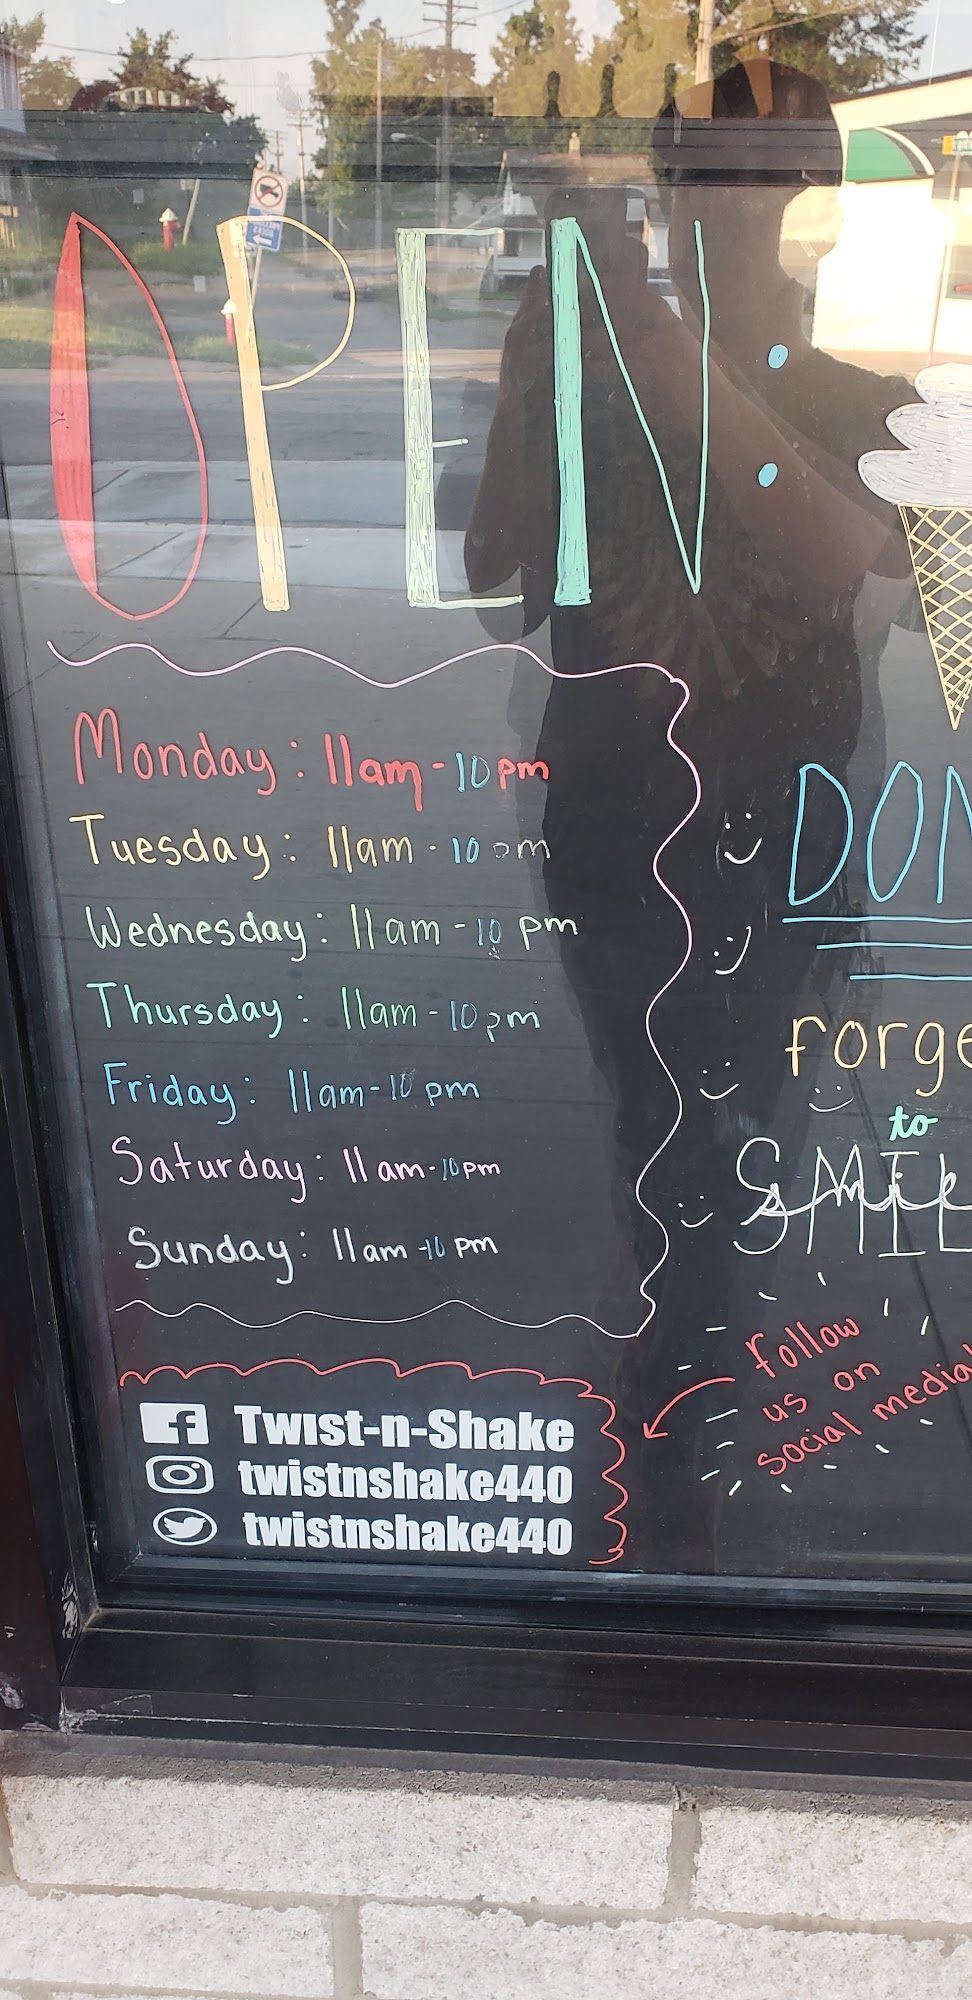 OPEN:
Monday: 11am-10pm
Tuesday: 11am-10pm
Wednesday: 11am-10pm
Thursday: 11am-10pm
Friday: 11am-10pm
Saturday: 11am-10pm
Sunday: 11am-10pm
Twist-n-Shake
twistnshake440
twistnshake440
DON
forge
to
SMIL
follow
us on
social media!